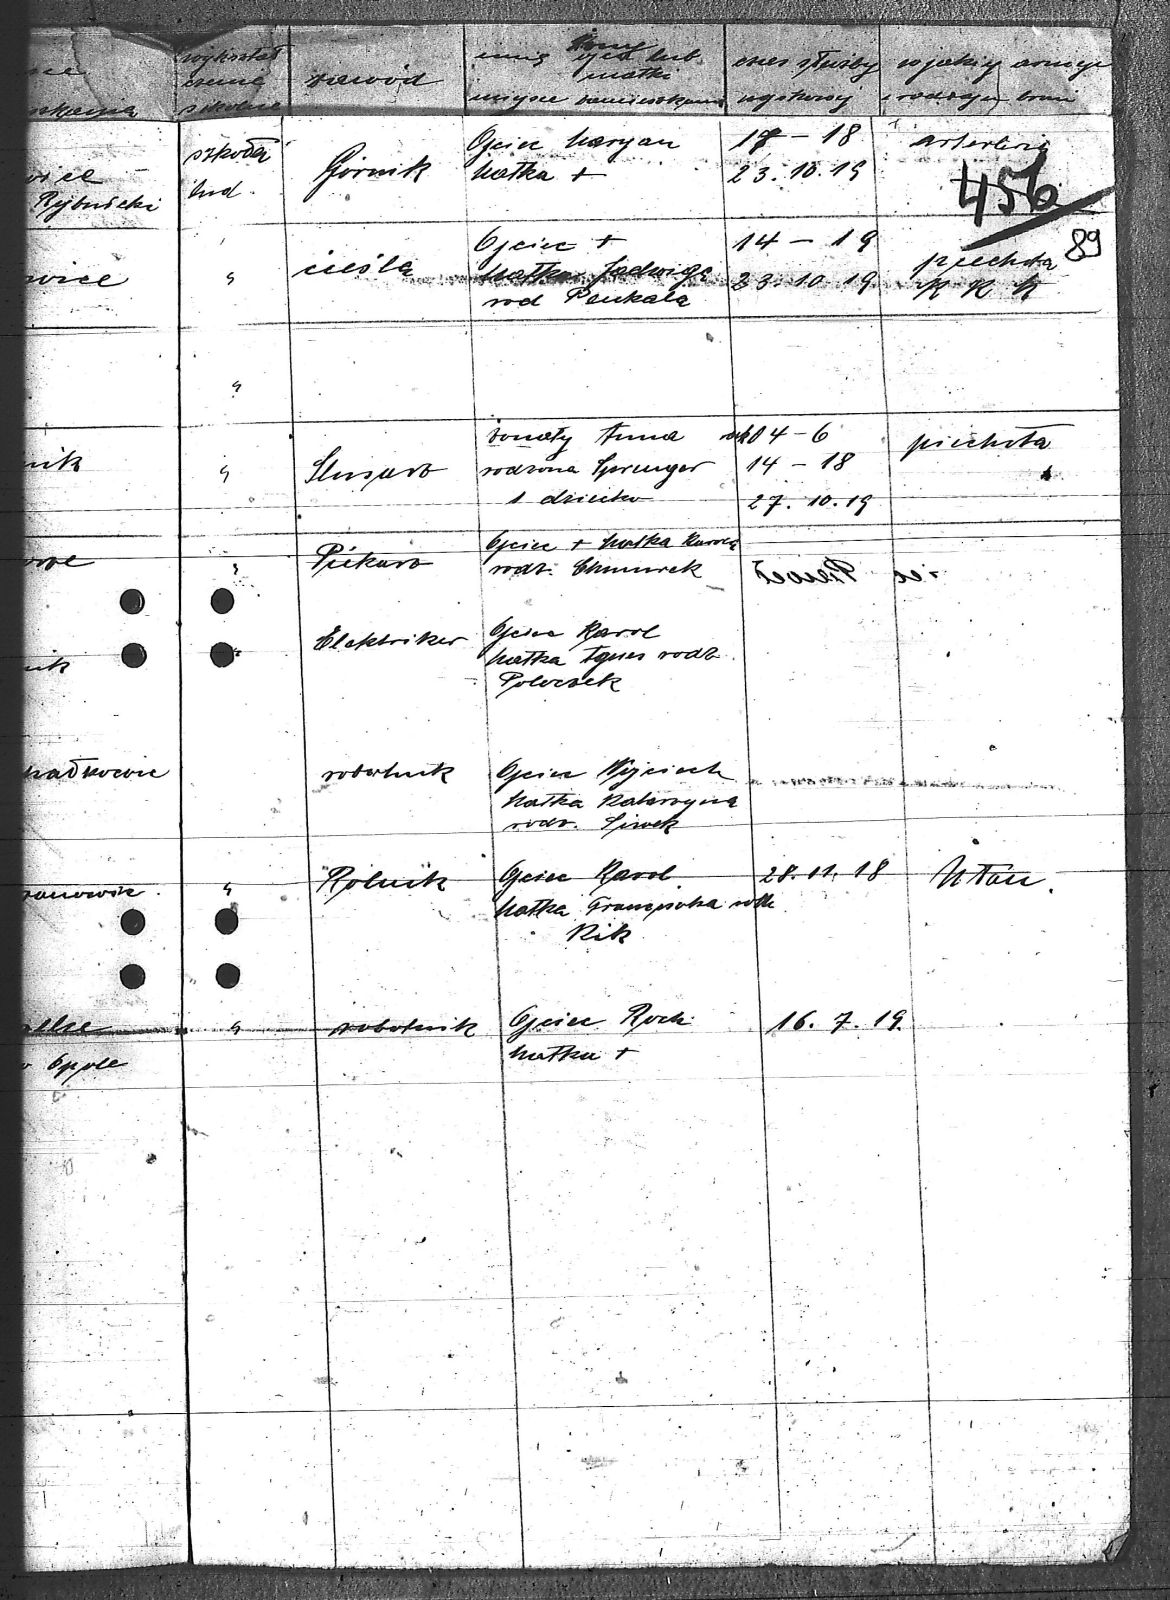 wykształ
cenie
szkolne
zawód
żony
imię ojca lub
matki
miejsce zamieszkania
czas służby
wojskowej
w jakiej armji
i rodzaju broni
szkoła
lud.
Górnik
Ojciec Maryan
Matka +
17 - 18
23. 10. 19
arterlirie
456
89
wice
Rybnicki
wice
"
cieśla
Ojciec +
Matka Jadwiga
rod Penkala
14 - 19
23. 10. 19.
piechota
K K K
"
nik
"
Slusarz
żonaty Anna
rodzona Sprenger
1 dziecko
04 - 6
14 - 18
27. 10. 19
piechota
"
Piekarz
Ojciec + Matka Karola
rodz. Chmurek
nik
"
Elektriker
Ojciec Karol
Matka Agnes rodz.
Poloczek
robotnik
Ojciec Wojciech
Matka Katarzyna
rodz. Siwek
"
Rolnik
Ojciec Karol
Matka Franciszka
Kik
28. 11. 18
Ułan.
"
robotnik
Ojciec Roch
Matka +
16. 7. 19.
Opole